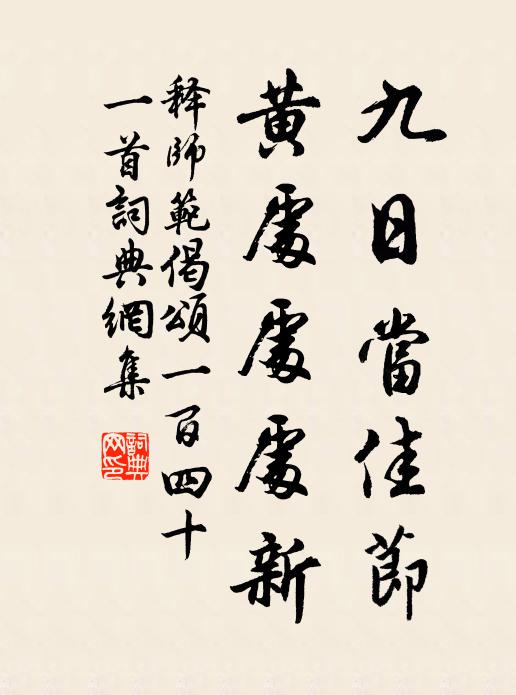 九日當佳節
黃處處處新
釋師範偈頌一百四十
一首詞典網集
詞典网印